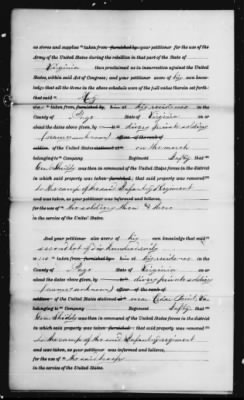 as stores and supplies "taken from, furnished by, your petitioner for the use of the
Army of the United States during the rebellion in that part of the State of
Virginia then proclaimed as in insurrection against the United
States, within said Act of Congress; and your petitioner avers of his own know-
ledge that all the items in the above schedule were of the full value therein set forth:
that said "
was "taken from, furnished by, him at his residence in the
County of Page State of Virginia on or
about the dates above given, by divers private soldiers
(names unknown) after of the rank of
soldier of the United States stationed at on the march
belonging to Company Regiment Infty
Gen Shields was removed of the United States forces in the district
in which said property was taken furnished; that said property was removed
to the camp of the said Infantry Regiment
and your petitioner was informed and believes,
for the use of the soldiers then & there
in the service of the United States.
And your petitioner also avers of his own knowledge that said
second lot of
was "taken from furnished by, his residence in the
County of Page State of Virginia on or
about the dates above given, by divers private soldiers
(names unknown) after of the rank of
soldier of the United States stationed at near
belonging to Company Regiment Infty
Gen Shields was removed of the United States forces in the district
in which said property was taken furnished; that said property was removed
to the camp of the said Infantry regiment
and was taken, as your petitioner was informed and believes,
for the use of the said troops
in the service of the United States.